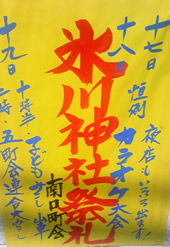 十七日
夜店もいろいろ出ます
十八日
恒例
カラオケ大会
氷川神社祭礼
南口町会
十九日
十時半・子どもみこし・山車
二時・五町会連合大みこし